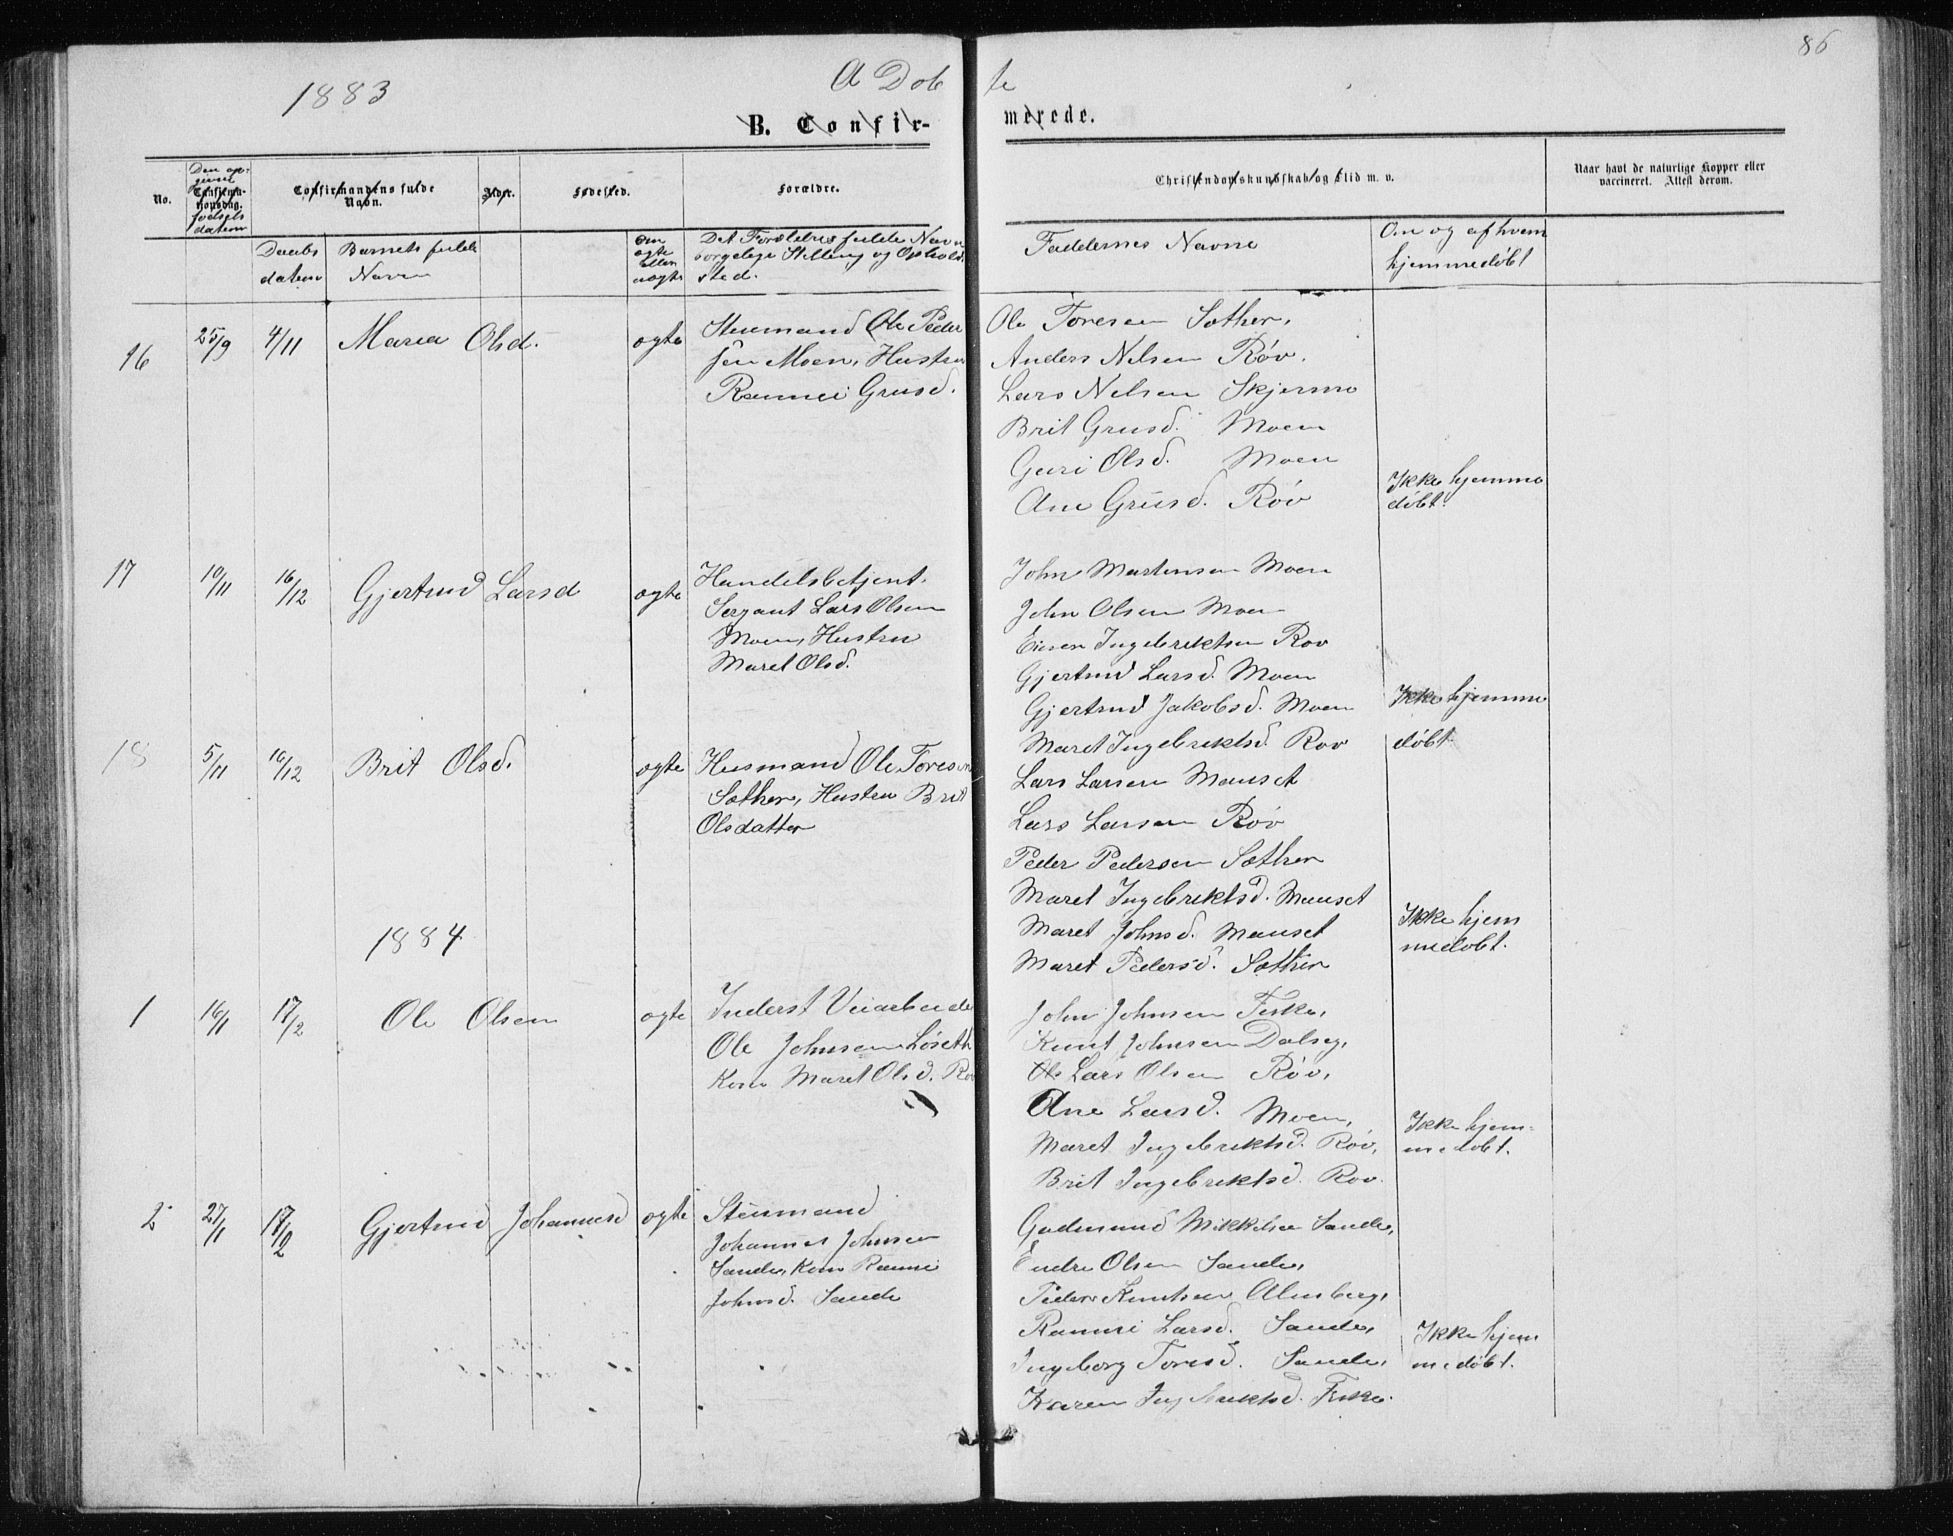 86
1883
A Dobte
B. Confirmerede.
No.
Den opgivne fødselsdatum
Confirmationsdag.
Confirmandens fulde Navn.
Alder.
Fødested.
Forældre.
Christendomskundskab og Flid m. v.
Naar havt de naturlige Kopper eller vaccineret. Attest derom.
Daabsdatum
Barnets fulde Navn
Om ægte eller uægte
Det Forældres fulde Navn borgelige Stilling og Opholdssted.
Faddernes Navne
Om og af hvem hjemmedøbt
16 25/9 4/11 Maria Olsd. ægte
Steumand Ole Peder
sen Moen, Hustru
Rannei Grusd.
Ole Toresen Sæther,
Anders Nelsen Røv.
Lars Nelsen Skjermo
Brit Grusd. Moen
Guri Olsd. Moen
Ane Grusd. Røv
Ikke hjemme
døbt.
17 10/11 16/12 Gjertrud Larsd ægte
Handelsbetjent.
Sergant Lars Olsen
Moen, Hustru
Maret Olsd.
John Martensen Moen
John Olsen Moen
Ingebriktsen Rov
Gjertrud Larsd. Moen
Gjertrud Jakobsd. Moen
Maret Ingebriktsd. Rov
Ikke hjemme
døbt.
18 5/11 16/12 Brit Olsd. ægte
Husmand Ole Toresen
Sæther, Hustru Brit
Olsdatter
Lars Larsen Mauset
Lars Larsen Røv
Peder Pedersen Sæther
Maret Ingebriktsd. Mauset
Maret Johnsd. Mauset
Maret Pedersd. Sæther
Ikke hjem
medøbt.
1884
1 16/1 17/2 Ole Olsen ægte
Inderst Veiarbeide
Ole Johnsen Løseth
Kone Maret Olsd. Røv
John Johnsen Fiske,
Knut Johnsen Dalseg,
Ole Lars Olsen Røv,
Ane Larsd. Moen,
Maret Ingebriktsd. Røv,
Brit Ingebriktsd. Rov.
Ikke hjem-
medøbt.
2 27/1 17/2 Gjertrud Johannesd ægte
Steumand
Johannes Johnsen
Sande, Kone Rannei
Johnsd. Sande
Gudmund Mikkelsen Sande,
Endre Olsen Sande,
Peder Knutsen Almberg,
Rannei Larsd. Sande,
Ingeborg Toresd. Sande,
Karen Ingebriktsd. Fiske.
Ikke hjem
medøbt.